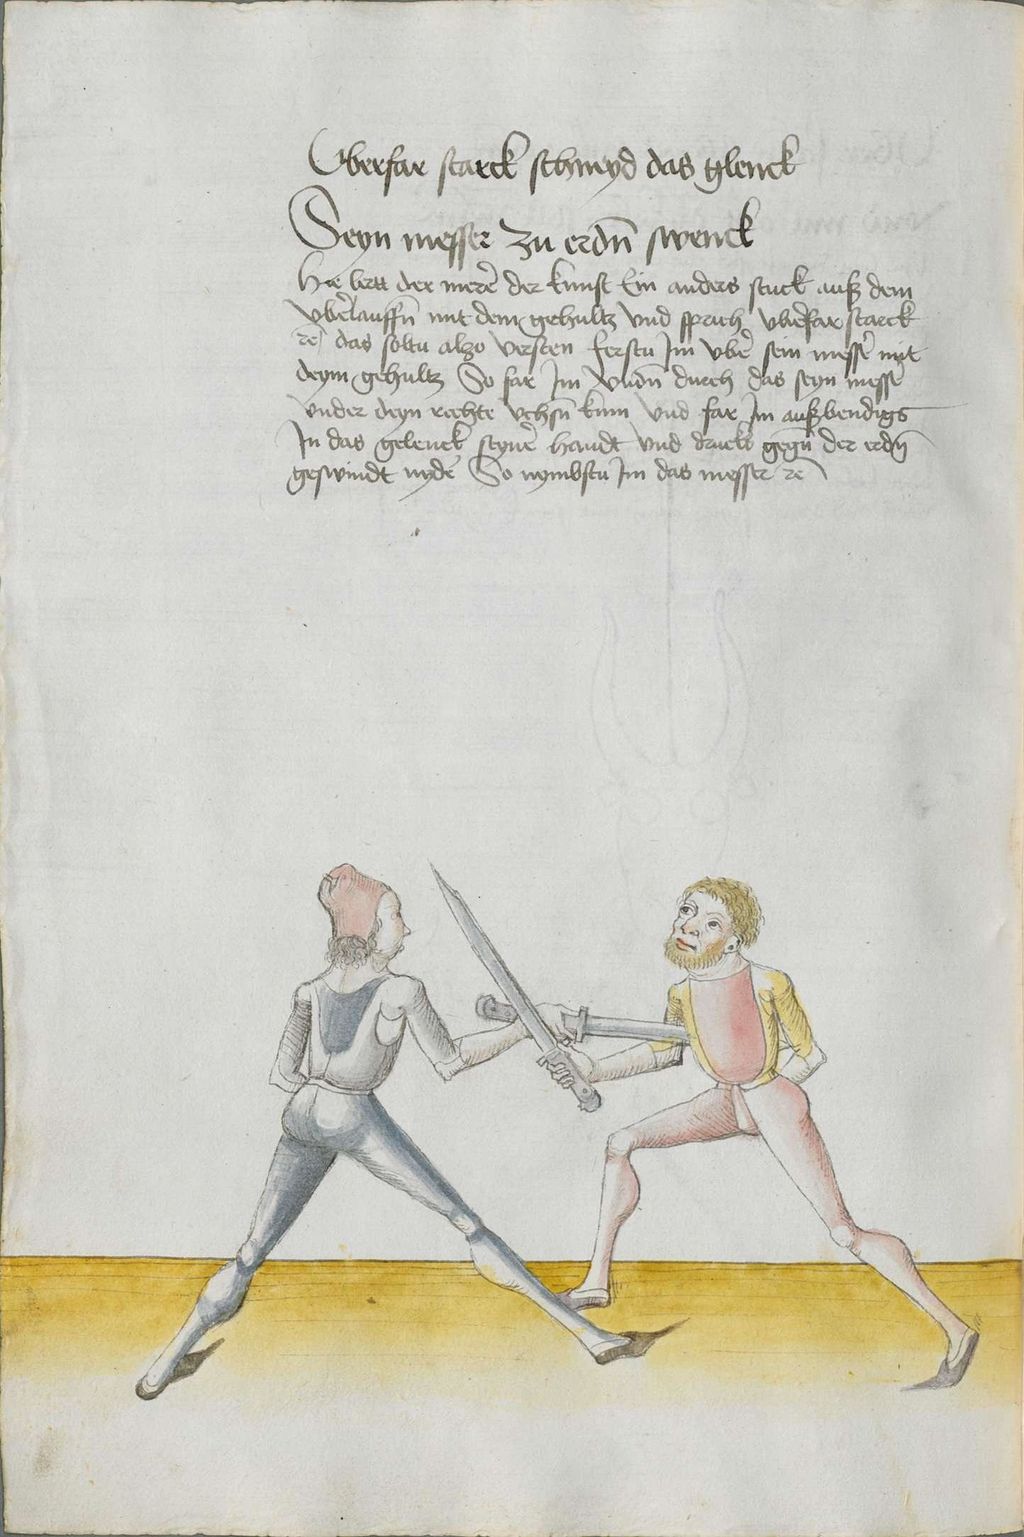 Vberfar starck schneyd das glenck
Seyn messer zu erdn̄ swenck
Hie lertt der merē der kunst Ein anders stuck auß dem
vbēlauffn̄ mit dem gehultz vnd sprich vbēfar starck
rē das soltu alzo versten ferstu Im vbē sein messē mit
deym gehultz So far Im vndn̄ durch das seyn messē
vnder deyn rechte vchsn̄ kum vnd far Im außbendigs
In das gelenck seynē handt vnd druck gegn̄ der erdn̄
geswindt nydē So nymbstu Im das messer rē